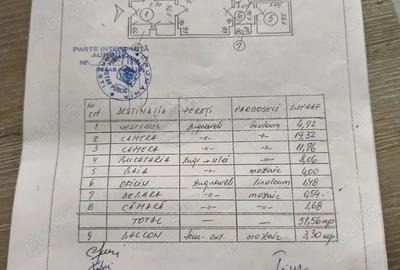 1
6
5
7
PARTE INTEGRANTĂ
ROMÂNIA
Nr. crt DESTINAȚIA PEREȚI PARDOSELI SUPRAF
1 VESTIBUL zugraveli linoleum 4,92
2 CAMERA -"- -"- 19,32
3 CAMERA -"- -"- 11,96
4 BUCATARIA zugr+ulei -"- 8,06
5 BAIA -"- mozaic 4,00
6 OFICIU zugraveli linoleum 1,48
7 DEBARA -"- mozaic 0,54
8 CĂMARĂ -"- -"- 1,68
TOTAL — — 51,56 mp
9 BALCON mozaic 3,30 mp